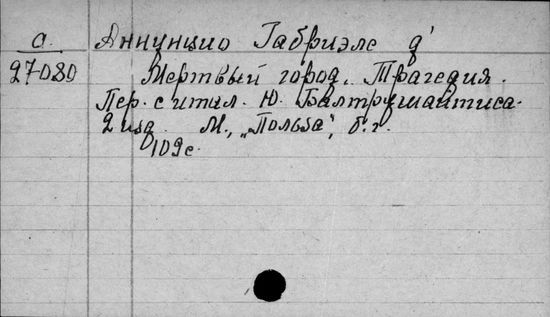 а. Аннунцио Габриэле д'
27080 Мертвый город. Трагедия.
Пер. с итал. Ю. Балтрушайтиса.
2 изд. М., „Польза", б. г.
109 с.